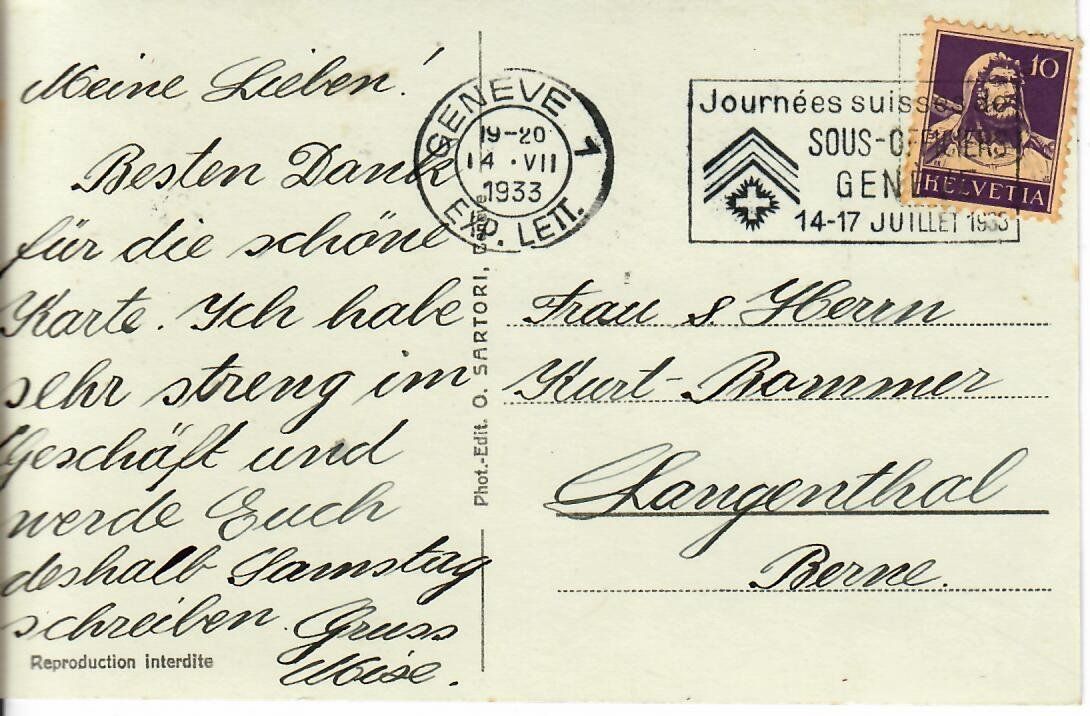 Meine Lieben!
Besten Dank
für die schöne
Karte. Ich habe
sehr streng im
Geschäft und
werde Euch
deshalb Samstag
schreiben. Gruss
Reproduction interdite
Phot.-Edit. O. SARTORI,
GENEVE 1
19-20
14 · VII
1933
EXP. LETT.
Journées suisses des
SOUS-OFFICIERS
GENEVE
14-17 JUILLET 1933
10
HELVETIA
Frau & Herrn
Kurt-Rammer
Langenthal
Berne.